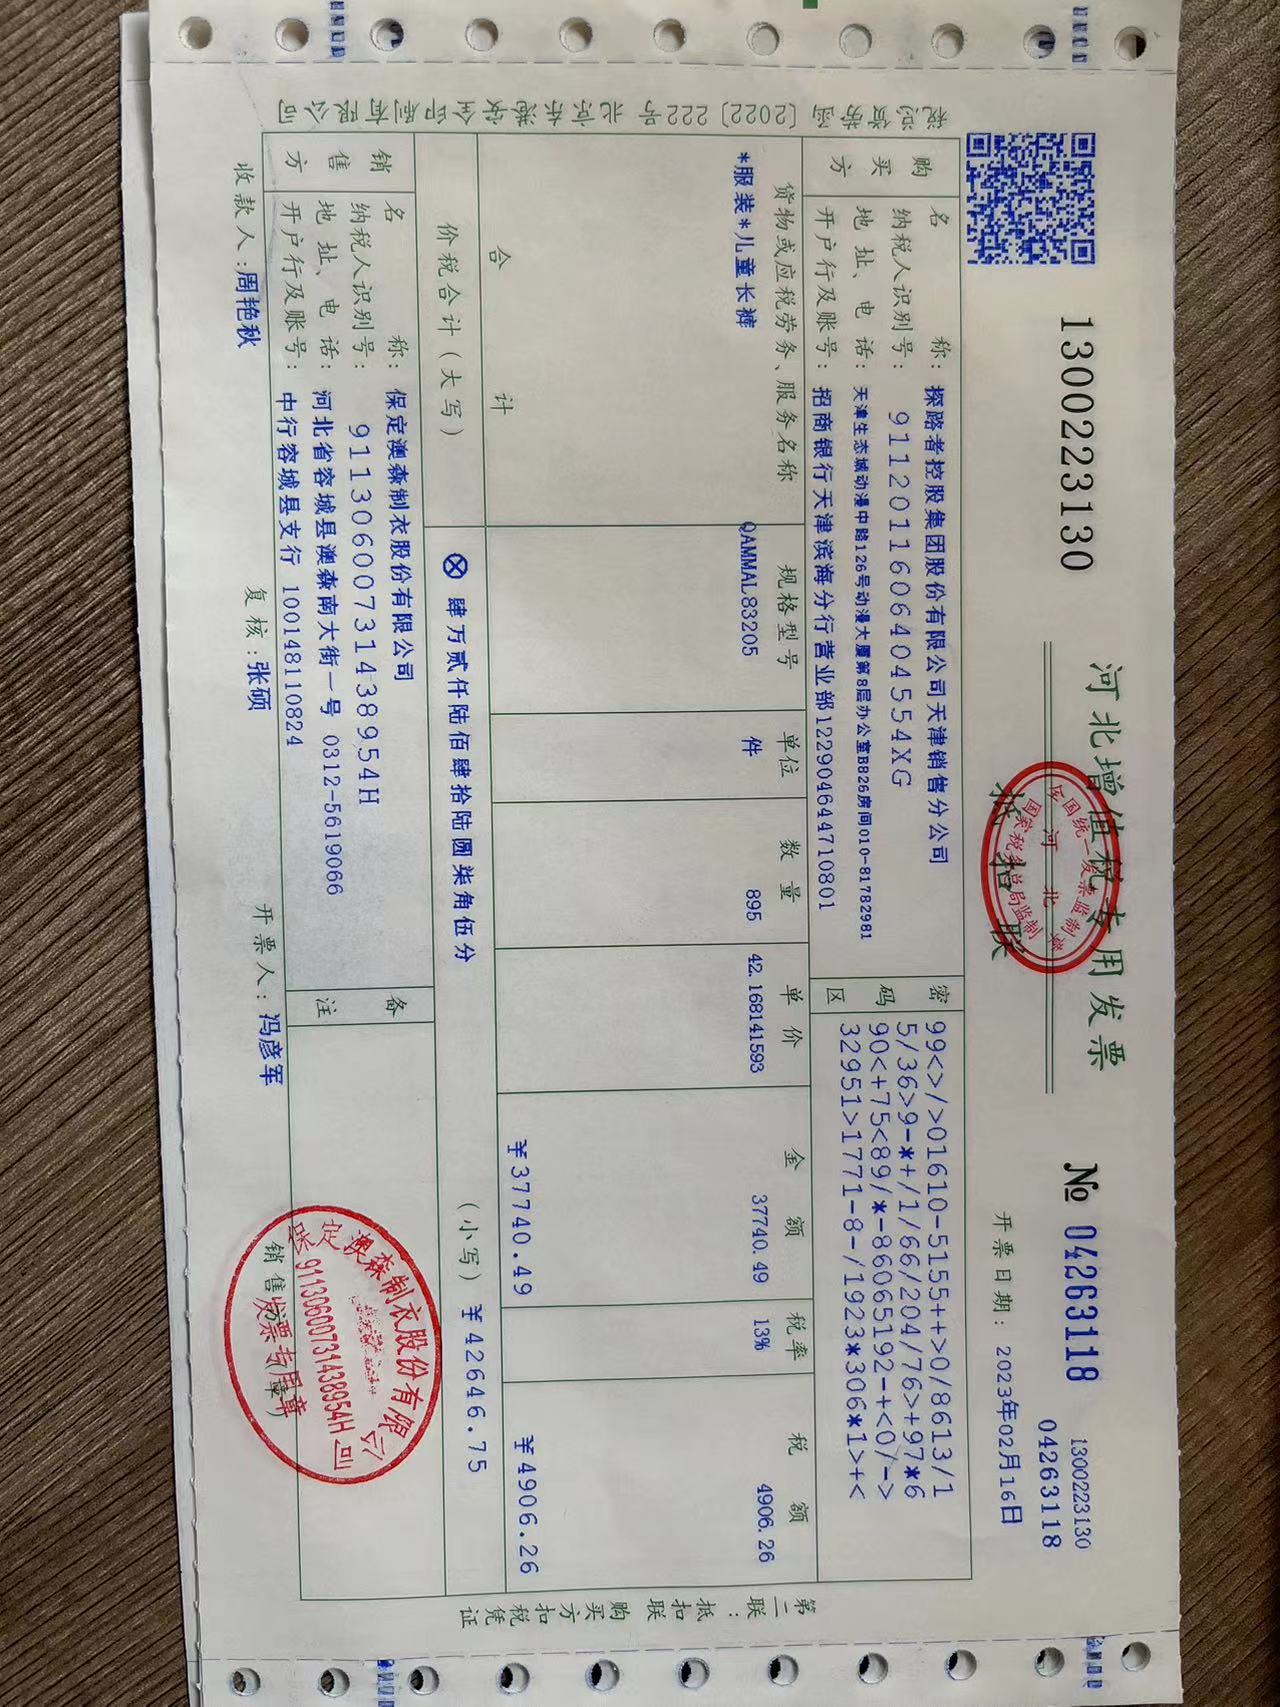 1300223130
河北增值税专用发票
抵扣联
№ 04263118
1300223130
04263118
开票日期: 2023年02月16日
税总货劳函〔2022〕222号 北京东港安全印刷有限公司
购买方
名称: 探路者控股集团股份有限公司天津销售分公司
纳税人识别号: 9112011606404554XG
地址、电话: 天津生态城动漫中路126号动漫大厦第8层办公室B826房间010-81782981
开户行及账号: 招商银行天津滨海分行营业部122904644710801
密码区
99<>/>01610-5155++>0/8613/1
5/36>9-*+/1/66/204/76>+97*6
90<+75<89/*-86065192-+<0/->
32951>1771-8-/1923*306*1>+<
货物或应税劳务、服务名称 规格型号 单位 数量 单价 金额 税率 税额
*服装*儿童长裤 QAMMAL83205 件 895 42.168141593 37740.49 13% 4906.26
合计 ¥37740.49 ¥4906.26
价税合计(大写) ⊗肆万贰仟陆佰肆拾陆圆柒角伍分 (小写) ¥42646.75
销售方
名称: 保定澳森制衣股份有限公司
纳税人识别号: 91130600731438954H
地址、电话: 河北省容城县澳森南大街一号 0312-5619066
开户行及账号: 中行容城县支行 100148110824
备注
收款人: 周艳秋 复核: 张硕 开票人: 冯彦军 销售方:(章)
第二联:抵扣联 购买方扣税凭证
全国统一发票监制章
河北
国家税务总局监制
保定澳森制衣股份有限公司
91130600731438954H
发票专用章